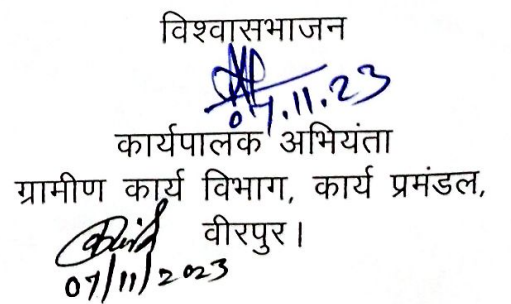 विश्वासभाजन
07.11.23
कार्यपालक अभियंता
ग्रामीण कार्य विभाग, कार्य प्रमंडल,
वीरपुर।
07/11/2023